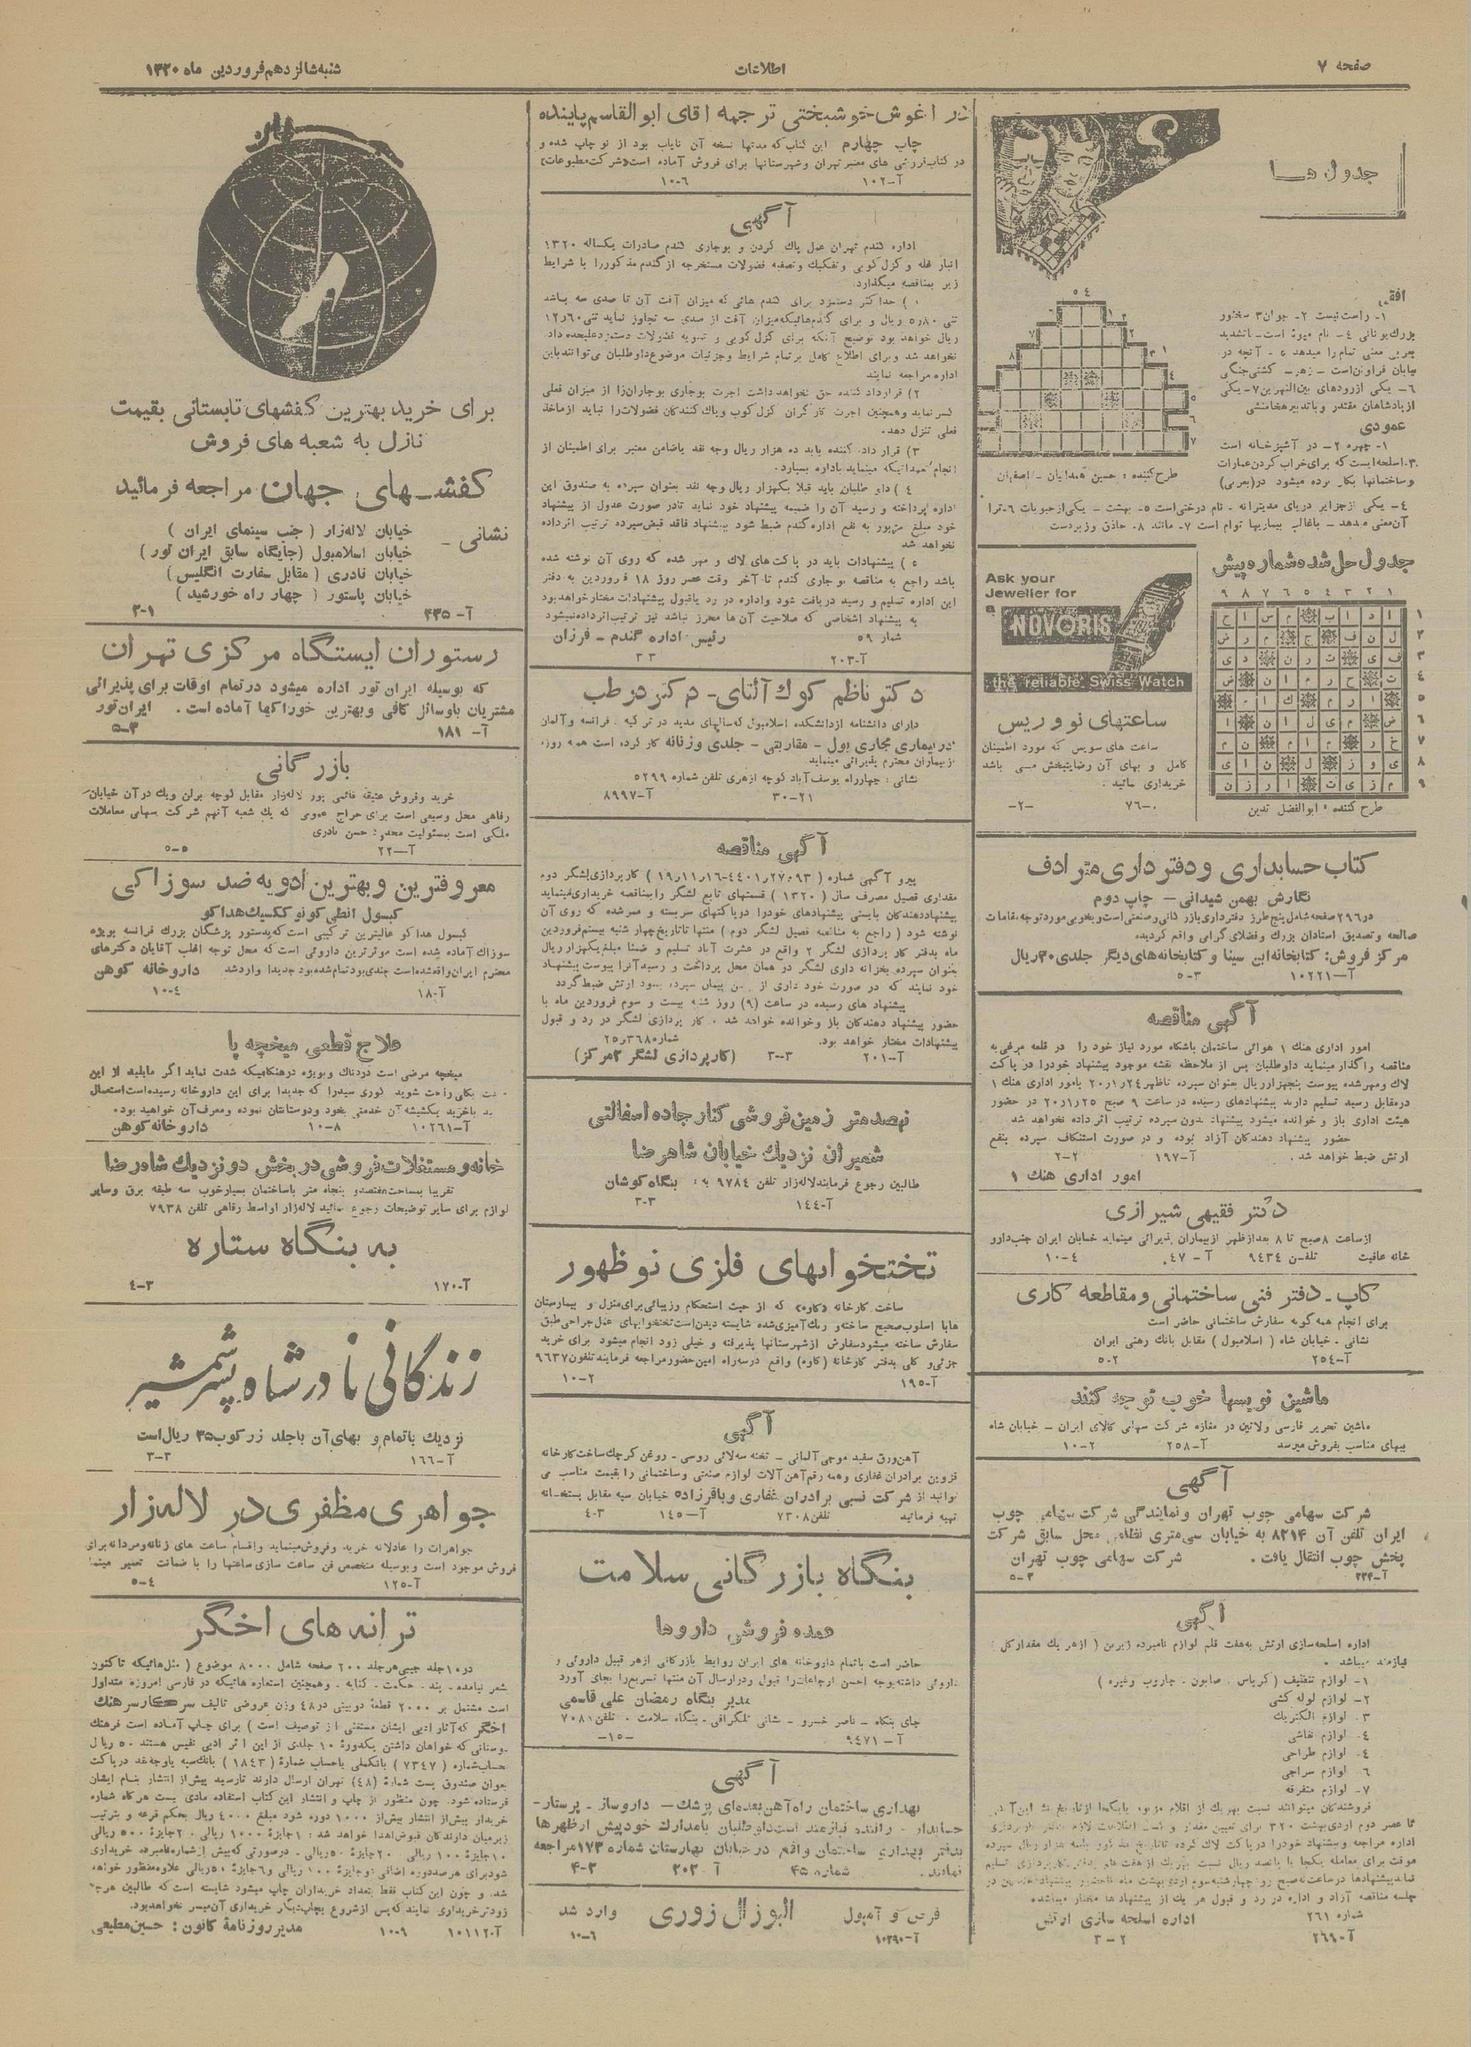 صفحه ۷
اطلاعات
شنبه شانزدهم فروردین ماه ۱۳۲۰
جدول ها
افقی
۱- راست نیست ۲- جوان ۳ سخنور
بزرگ یونانی ۴- نام میوهٔ است- باتشدید
بعربی معنی تمام را میدهد ۵- آنچه در
بیابان فراوان است - زهر- کشتی جنگی
۶- یکی از رودهای بین النهرین ۷- یکی
از پادشاهان مقتدر و باتدبیر هخامنشی
عمودی
۱- چهره ۲- در آشپزخانه است
۳- اسلحه ایست که برای خراب کردن عمارات
وساختمانها بکار برده میشود در(بعربی)
طرح کننده : حسین همدانیان - اصفهان
۴- یکی از جزایر دریای مدیترانه - نام درختی است ۵- بهشت - یکی از حبوبات ۶- ترا
آن معنی میدهد - باغالب بیماریها توام است ۷- مانند ۸- حاذق و زبردست
جدول حل شده شماره پیش
طرح کننده : ابوالفضل تدین
Ask your
Jeweller for
a
NOVORIS
the reliable Swiss Watch
ساعتهای نووریس
ساعت های سویس که مورد اطمینان
کامل و بهای آن رضایتبخش می باشد
خریداری نمائید .
کتاب حسابداری و دفترداری مترادف
نگارش بهمن شیدانی - چاپ دوم
در ۲۹۶ صفحه شامل پنج طرز دفترداری بازرگانی وصنعتی است وبخوبی مورد توجه مقامات
صالحه وتصدیق استادان بزرگ وفضلای گرامی واقع گردیده
مرکز فروش: کتابخانه ابن سینا و کتابخانه های دیگر جلدی ۳۰ ریال
آ-۱۰۲۲۱ ۵-۳
آگهی مناقصه
امور اداری هنگ ۱ هوائی ساختمان باشگاه مورد نیاز خود را در قلعه مرغی به
مناقصه واگذار مینماید داوطلبان پس از ملاحظه نقشه موجود پیشنهاد خود را در پاکت
لاک ومهر شده بپیوست پنجهزار ریال بعنوان سپرده تاظهر ۲۰ر۱ر۲۴ بامور اداری هنگ ۱
درمقابل رسید تسلیم دارند پیشنهادهای رسیده در ساعت ۹ صبح ۲۰ر۱ر۲۵ در حضور
هیئت اداری باز و خوانده میشود پیشنهاد بدون سپرده ترتیب اثر داده نخواهد شد
حضور پیشنهاد دهندگان آزاد بوده و در صورت استنکاف سپرده بنفع
ارتش ضبط خواهد شد . آ-۱۹۷ ۲-۲
امور اداری هنگ ۱
دکتر فقیهی شیرازی
از ساعت ۸ صبح تا ۸ بعد از ظهر از بیماران پذیرائی مینماید خیابان ایران جنب دارو
خانه عافیت تلفن ۹۴۳۴ آ-۴۷ ۱۰-۴
کاپ - دفتر فنی ساختمانی و مقاطعه کاری
برای انجام همه گونه سفارش ساختمانی حاضر است
نشانی - خیابان شاه (اسلامبول) مقابل بانک رهنی ایران
آ-۲۵۴ ۵-۲
ماشین نویسها خوب توجه کنند
ماشین تحریر فارسی ولاتین در مغازه شرکت سهامی کالای ایران - خیابان شاه
ببهای مناسب بفروش میرسد آ-۲۵۸ ۱۰-۲
آگهی
شرکت سهامی چوب تهران و نمایندگی شرکت سهامی چوب
ایران تلفن آن ۸۲۱۴ به خیابان سی متری نظامی محل سابق شرکت
پخش چوب انتقال یافت . شرکت سهامی چوب تهران
آ-۲۳۴ ۵-۳
آگهی
اداره اسلحه سازی ارتش به هفت قلم لوازم نامبرده زیرین ( از هر یک مقدار کل )
نیازمند میباشد .
۱- لوازم تنظیف (کرباس . صابون . جاروب وغیره )
۲- لوازم لوله کشی
۳. لوازم الکتریک
۴- لوازم نقاشی
۵- لوازم طراحی
۶- لوازم سراجی
۷- لوازم متفرقه
اداره اسلحه سازی ارتش
شماره ۲۶۱
آ-۲۶۹ ۳-۲
در آغوش خوشبختی ترجمه آقای ابوالقاسم پاینده
چاپ چهارم این کتاب که مدتها نسخه آن نایاب بود از نو چاپ شده و
در کتابفروشی های معتبر تهران وشهرستانها برای فروش آماده است (شرکت مطبوعات)
آ-۱۰۲ ۱۰-۶
آگهی
اداره گندم تهران عمل پاک کردن و بوجاری گندم صادرات یکساله ۱۳۲۰
انبار غله و کزل کوبی وتفکیک وتصفیه فضولات مستخرجه از گندم مذکور را با شرایط
زیر بمناقصه میگذارد.
۱) حداکثر دستمزد برای گندم هائی که میزان آفت آن تا صدی سه باشد
تنی ۵ر۸۰ ریال و برای گندمهائیکه میزان آفت از صدی سه تجاوز نماید تنی ۱۲ر۶۰
ریال خواهد بود توضیح آنکه برای کزل کوبی و تسویه فضولات دستمزد علیحده داده
نخواهد شد وبرای اطلاع کامل بر تمام شرایط وجزئیات موضوع داوطلبان می توانند باین
اداره مراجعه نمایند
۲) قرارداد کننده حق نخواهد داشت اجرت بوجاری بوجاران را از میزان فعلی
کسر نماید وهمچنین اجرت کارگران کزل کوب وپاک کنندگان فضولات را نباید از ماخذ
فعلی تنزل دهد.
۳) قرارداد کننده باید ده هزار ریال وجه نقد یا ضامن معتبر برای اطمینان از
انجام تعهداتیکه مینماید باداره بسپارد.
۴) داوطلبان باید قبلا یکهزار ریال وجه نقد بعنوان سپرده به صندوق این
اداره پرداخته و رسید آن را ضمیمه پیشنهاد خود نماید تا در صورت عدول از پیشنهاد
خود مبلغ مزبور به نفع اداره گندم ضبط شود پیشنهاد فاقد قبض سپرده ترتیب اثر داده
نخواهد شد
۵) پیشنهادات باید در پاکت های لاک و مهر شده که روی آن نوشته شده
باشد راجع به مناقصه بوجاری گندم تا آخر وقت عصر روز ۱۸ فروردین به دفتر
این اداره تسلیم و رسید دریافت شود واداره در رد یاقبول پیشنهادات مختار خواهد بود
به پیشنهاد اشخاصی که صلاحیت آن ها محرز نباشد نیز ترتیب اثر داده نمیشود
شماره ۵۹ رئیس اداره گندم - فرزان
آ-۲۰۳ ۳-۳
دکتر ناظم کوک آتای - دکتر در طب
دارای دانشنامه از دانشکده اسلامبول که سالهای مدید در ترکیه . فرانسه و آلمان
در بیماری مجاری بول - مقاربتی - جلدی وزنانه کار کرده است همه روزه
از بیماران محترم پذیرائی مینماید
نشانی : چهارراه یوسف آباد کوچه ازهری تلفن شماره ۵۲۹۹
آ-۸۹۹۷ ۳۰-۲۱
آگهی مناقصه
پیرو آگهی شماره ( ۲۷۰۹۳ر۴۴۰۱-۱۹ر۱۱ر۱۶ ) کارپردازی لشگر دوم
مقداری فصیل مصرف سال (۱۳۲۰) قسمتهای تابع لشگر را بمناقصه خریداری مینماید
پیشنهاد دهندگان بایستی پیشنهادهای خود را در پاکتهای سربسته و مهر شده که روی آن
نوشته شود ( راجع به مناقصه فصیل لشگر دوم ) منتها تا تاریخ چهارشنبه بیستم فروردین
ماه بدفتر کارپردازی لشگر ۲ واقع در عشرت آباد تسلیم و ضمنا مبلغ یکهزار ریال
بعنوان سپرده بخزانه داری لشگر در همان محل پرداخت و رسید آنرا پیوست پیشنهاد
خود نمایند که در صورت خودداری از بستن پیمان سپرده بسود ارتش ضبط گردد
پیشنهاد های رسیده در ساعت (۹) روز شنبه بیست و سوم فروردین ماه با
حضور پیشنهاد دهندگان باز و خوانده خواهد شد . کارپردازی لشگر در رد و قبول
پیشنهادات مختار خواهد بود.
شماره ۳۶۸ر۲۵
آ-۲۰۱ ۳-۳ (کارپردازی لشگر ۲ مرکز)
نهصد متر زمین فروشی کنار جاده اسفالتی
شمیران نزدیک خیابان شاهرضا
طالبین رجوع فرمایند لاله زار تلفن ۹۷۸۴ به : بنگاه کوشان
آ-۱۴۴ ۳-۳
تختخوابهای فلزی نوظهور
ساخت کارخانه (کاوه) که از حیث استحکام وزیبائی برای منزل و بیمارستان
هابا اسلوب صحیح ساخته و رنگ آمیزی شده شایسته دیدن است تختخوابهای عمل جراحی طبق
سفارش ساخته میشود سفارش از شهرستانها پذیرفته و خیلی زود انجام میشود برای خرید
جزئی و کلی بدفتر کارخانه (کاوه) واقع در سه راه امین حضور مراجعه فرمایند تلفون ۹۶۳۷
آ-۱۹۵ ۱۰-۲
آگهی
آهن ورق سفید موجی آلمانی - تخته سه لائی روسی - روغن کرچک ساخت کارخانه
قزوین برادران غفاری وهمه رقم آهن آلات لوازم صنعتی وساختمانی را بقیمت مناسب می
توانید از شرکت نسبی برادران غفاری و باقرزاده خیابان سپه مقابل پستخانه
تهیه فرمائید تلفن ۷۳۰۸ آ-۱۴۵ ۴-۳
بنگاه بازرگانی سلامت
عمده فروشی داروها
حاضر است باتمام داروخانه های ایران روابط بازرگانی از هر قبیل داروئی و
داروئی داشته بوجه احسن ارجاعات را قبول و در ارسال آن منتها تسریع را بجای آورد
مدیر بنگاه رمضان علی قاسمی
جای بنگاه - ناصر خسرو - نشانی تلگرافی - بنگاه سلامت . تلفن ۷۰۸۱
آ-۹۴۷۱ -۱۵-
آگهی
بهداری ساختمان راه آهن به عده ای پزشک - داروساز - پرستار-
حسابدار - راننده نیازمند است داوطلبان با مدارک خود پیش از ظهرها
بدفتر بهداری ساختمان واقع در خیابان بهارستان شماره ۱۷۳ مراجعه
نمایند . شماره ۴۵ آ ۲۰۲ ۴-۳
قرص و آمپول البوزال زوری وارد شد
آ-۱۰۲۹۰ ۱۰-۶
برای خرید بهترین کفشهای تابستانی بقیمت
نازل به شعبه های فروش
کفشهای جهان مراجعه فرمائید
نشانی -
خیابان لاله زار ( جنب سینمای ایران )
خیابان اسلامبول (جایگاه سابق ایران تور )
خیابان نادری ( مقابل سفارت انگلیس )
خیابان پاستور ( چهار راه خورشید )
آ-۲۳۵ ۳-۱
رستوران ایستگاه مرکزی تهران
که بوسیله ایران تور اداره میشود در تمام اوقات برای پذیرائی
مشتریان باوسائل کافی و بهترین خوراکها آماده است . ایران تور
آ-۱۸۱ ۵-۳
بازرگانی
خرید وفروش عتیقه قائمی پور لاله زار مقابل کوچه برلن و یک در آن خیابان
رفاهی محل وسیعی است برای حراج عمومی که یک شعبه آنهم شرکت سهامی معاملات
ملکی است بمسئولیت محدود: حسن نادری
آ-۲۲ ۵-۵
معروفترین و بهترین ادویه ضد سوزاکی
کپسول انطی گونوککسیک هداکو
کپسول هداکو عالیترین ترکیبی است که بدستور پزشکان بزرگ فرانسه بویژه
سوزاک آماده شده است موثرترین داروئی است که محل توجه اغلب آقایان دکترهای
محترم ایران واقع شده است چندی بود تمام شده بود جدیدا وارد شد داروخانه کوهن
آ-۱۸ ۱۰-۴
علاج قطعی میخچه پا
میخچه مرضی است دردناک وبویژه در هنگامیکه شدت نماید اگر مایلید از این
بکلی راحت شوید کوری سیدرا که جدیدا برای این داروخانه رسیده است استعمال
باخرید یکشیشه آن خدمتی بخود ودوستانتان نموده ومعرف آن خواهید بود.
آ-۱۰۲۶۱ ۱۰-۸ داروخانه کوهن
خانه و مستغلات فروشی در بخش دو نزدیک شاهرضا
تقریبا بمساحت هفتصدو پنجاه متر باساختمان بسیارخوب سه طبقه برق وسایر
لوازم برای سایر توضیحات رجوع نمائید لاله زار اواسط رفاهی تلفن ۷۹۳۸
به بنگاه ستاره
آ-۱۷۰ ۴-۳
زندگانی نادرشاه پسر شمشیر
نزدیک باتمام و بهای آن باجلد زرکوب ۳۵ ریال است
آ-۱۶۶ ۳-۳
جواهری مظفری در لاله زار
جواهرات را عادلانه خرید وفروش مینماید واقسام ساعت های زنانه ومردانه برای
فروش موجود است و بوسیله متخصص فن ساعت سازی ساعتها را با ضمانت تعمیر مینماید
آ-۱۲۵ ۵-۴
ترانه های اخگر
در ۱۰ جلد جیبی هر جلد ۲۰۰ صفحه شامل ۸۰۰۰ موضوع ( مثل هائیکه تاکنون
بشعر نیامده . پند . حکمت . کنایه . وهمچنین استعاره هائیکه در فارسی امروزه متداول
است مشتمل بر ۲۰۰۰ قطعه دوبیتی در ۴۸ وزن عروضی تالیف سرکار سرهنگ
اخگر که آثار ادبی ایشان مستغنی از توصیف است ) برای چاپ آماده است فرهنگ
دوستانی که خواهان داشتن یکدوره ۱۰ جلدی از این اثر ادبی نفیس هستند ۵۰ ریال
بحساب شماره ( ۷۳۴۷ ) بانک ملی یا حساب شماره ( ۱۸۴۳ ) بانک سپه یا وجه نقد در پاکت
بعنوان صندوق پست شماره (۴۸) تهران ارسال دارند تا رسید پیش از انتشار بنام ایشان
فرستاده شود. چون منظور از چاپ و انتشار این کتاب استفاده مادی نیست هرگاه شماره
خریدار پیش از انتشار بیش از ۱۰۰۰ دوره شود مبلغ ۴۰۰۰ ریال بحکم قرعه و بترتیب
زیر میان دارندگان قبوض اهدا خواهد شد : ۱ جایزه ۱۰۰۰ ریالی . ۲ جایزه ۵۰۰ ریالی
۱۰ جایزه ۱۰۰ ریالی ۲۰ جایزه ۵۰ ریالی . در صورتی که بیش از شماره نامبرده خریداری
شود برای هر صد دوره اضافی دو جایزه ۱۰۰ ریالی و ۶ جایزه ۵۰ ریالی علاوه منظور خواهد
شد. و چون این کتاب فقط بتعداد خریداران چاپ میشود شایسته است که طالبین هر چه
زودتر خریداری نمایند که پس از شروع بچاپ دیگر خریداری آن میسر نخواهد بود.
آ-۱۰۱۱۲ ۱۰-۹ مدیر روزنامه کانون : حسین مطیعی